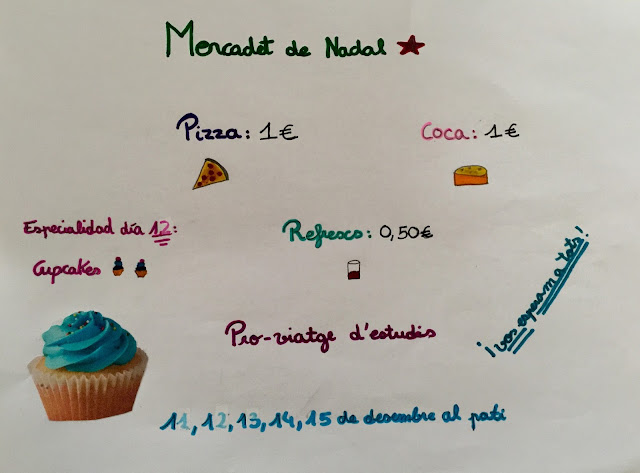 Mercadet de Nadal
Pizza: 1€
Coca: 1€
Especialidad día 12:
Cupcakes
Refresco: 0,50€
¡vos esperam a tots!
Pro-viatge d'estudis
11, 12, 13, 14, 15 de desembre al pati